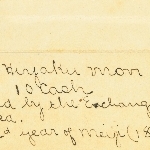 Kinjaku mon
10 cash
d by the Exchang
ea.
d year of Meiji (18